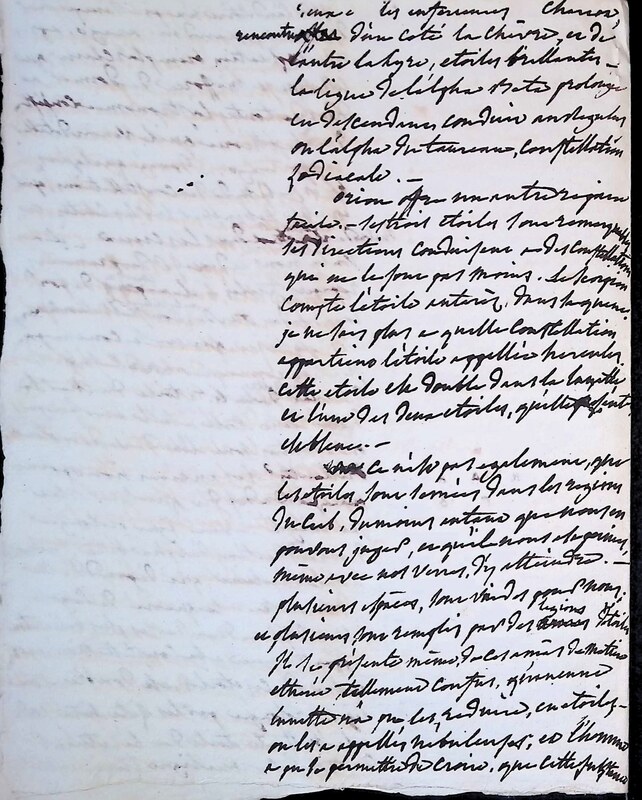 les inferieures
rencontre d'un coté la chèvre, et de
l'autre la lyre, etoiles brillantes –
la ligne de l'alpha beta prolongé
en descendant conduit a regulus
ou l'alpha du taureau, constellation
zodiacale. –
orion offre un autre
facile. – les trois etoiles sont
ses directions conduisent a des constellations
qui ne le sont pas moins. le scorpion
compte l'étoile antarès, dans la queue
je ne sais plus a quelle constellation
appartient l'étoile appellée hercules.
cette etoile est double dans la lunette
et l'une des deux etoiles, qu'elle
est bleue. –
ce n'est pas egalement, que
les étoiles, sont semées dans les regions
du ciel, du moins autant que nous en
pouvons juger, et qu'il nous est permis,
même avec nos verres, d'y atteindre. –
plusieurs espaces, sont vuides pour nous,
et plusieurs sont remplis par des legions d'étoiles
Il se présente même, de ces amas de matiere
etherée, tellement confus, qu'aucune
lunette n'a pu les reduire, en etoiles –
on les a appellés nebuleuses, et l'homme
a pu se permettre de croire, que cette substance